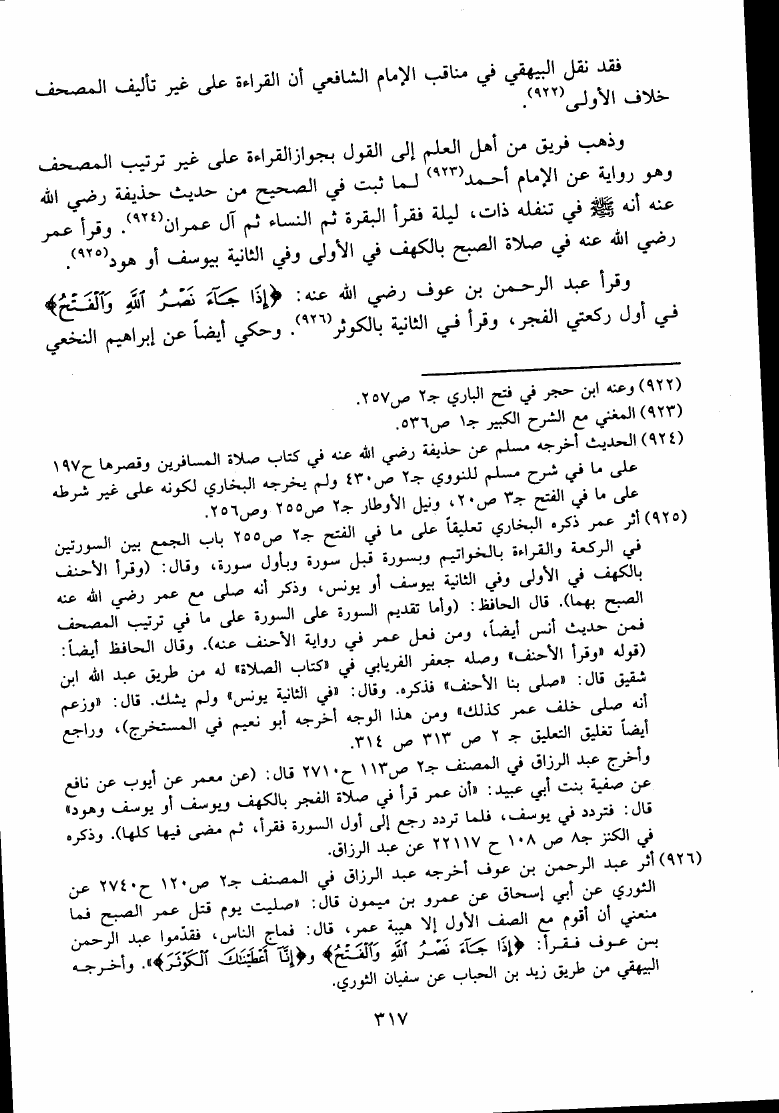 فقد نقل البيهقي في مناقب الإمام الشافعي أن القراءة على غير تأليف المصحف
خلاف الأولى(٩٢٢).
وذهب فريق من أهل العلم إلى القول بجوازالقراءة على غير ترتيب المصحف
وهو رواية عن الإمام أحمد(٩٢٣) لما ثبت في الصحيح من حديث حذيفة رضي الله
عنه أنه ﷺ في تنفله ذات، ليلة فقرأ البقرة ثم النساء ثم آل عمران(٩٢٤). وقرأ عمر
رضي الله عنه في صلاة الصبح بالكهف في الأولى وفي الثانية بيوسف أو هود(٩٢٥).
وقرأ عبد الرحمن بن عوف رضي الله عنه: ﴿إِذَا جَآءَ نَصْرُ ٱللَّهِ وَٱلْفَتْحُ﴾
في أول ركعتي الفجر، وقرأ في الثانية بالكوثر(٩٢٦). وحكي أيضاً عن إبراهيم النخعي
(٩٢٢) وعنه ابن حجر في فتح الباري جـ٢ ص٢٥٧.
(٩٢٣) المغني مع الشرح الكبير جـ١ ص٥٣٦.
(٩٢٤) الحديث أخرجه مسلم عن حذيفة رضي الله عنه في كتاب صلاة المسافرين وقصرها ح١٩٧
على ما في شرح مسلم للنووي جـ٢ ص٤٣٠ ولم يخرجه البخاري لكونه على غير شرطه
على ما في الفتح جـ٣ ص٢٠، ونيل الأوطار جـ٢ ص٢٥٥ وص٢٥٦.
(٩٢٥) أثر عمر ذكره البخاري تعليقاً على ما في الفتح جـ٢ ص٢٥٥ باب الجمع بين السورتين
في الركعة والقراءة بالخواتيم وبسورة قبل سورة وبأول سورة، وقال: (وقرأ الأحنف
بالكهف في الأولى وفي الثانية بيوسف أو يونس، وذكر أنه صلى مع عمر رضي الله عنه
الصبح بهما). قال الحافظ: (وأما تقديم السورة على السورة على ما في ترتيب المصحف
فمن حديث أنس أيضاً، ومن فعل عمر في رواية الأحنف عنه). وقال الحافظ أيضاً:
(قوله «وقرأ الأحنف» وصله جعفر الفريابي في «كتاب الصلاة» له من طريق عبد الله ابن
شقيق قال: «صلى بنا الأحنف» فذكره. وقال: «في الثانية يونس» ولم يشك. قال: «وزعم
أنه صلى خلف عمر كذلك» ومن هذا الوجه أخرجه أبو نعيم في المستخرج)، وراجع
أيضاً تغليق التعليق جـ ٢ ص ٣١٣ ص ٣١٤.
وأخرج عبد الرزاق في المصنف جـ٢ ص١١٣ ح٢٧١٠ قال: (عن معمر عن أيوب عن نافع
عن صفية بنت أبي عبيد: «أن عمر قرأ في صلاة الفجر بالكهف ويوسف أو يوسف وهود»
قال: فتردد في يوسف، فلما تردد رجع إلى أول السورة فقرأ، ثم مضى فيها كلها). وذكره
في الكنز جـ٨ ص ١٠٨ ح ٢٢١١٧ عن عبد الرزاق.
(٩٢٦) أثر عبد الرحمن بن عوف أخرجه عبد الرزاق في المصنف جـ٢ ص١٢٠ ح٢٧٤٠ عن
الثوري عن أبي إسحاق عن عمرو بن ميمون قال: «صليت يوم قتل عمر الصبح فما
منعني أن أقوم مع الصف الأول إلا هيبة عمر، قال: فماج الناس، فقدّموا عبد الرحمن
بن عوف فقرأ: ﴿إِذَا جَآءَ نَصْرُ ٱللَّهِ وَٱلْفَتْحُ﴾ و﴿إِنَّآ أَعْطَيْنَٰكَ ٱلْكَوْثَرَ﴾». وأخرجه
البيهقي من طريق زيد بن الحباب عن سفيان الثوري.
٣١٧